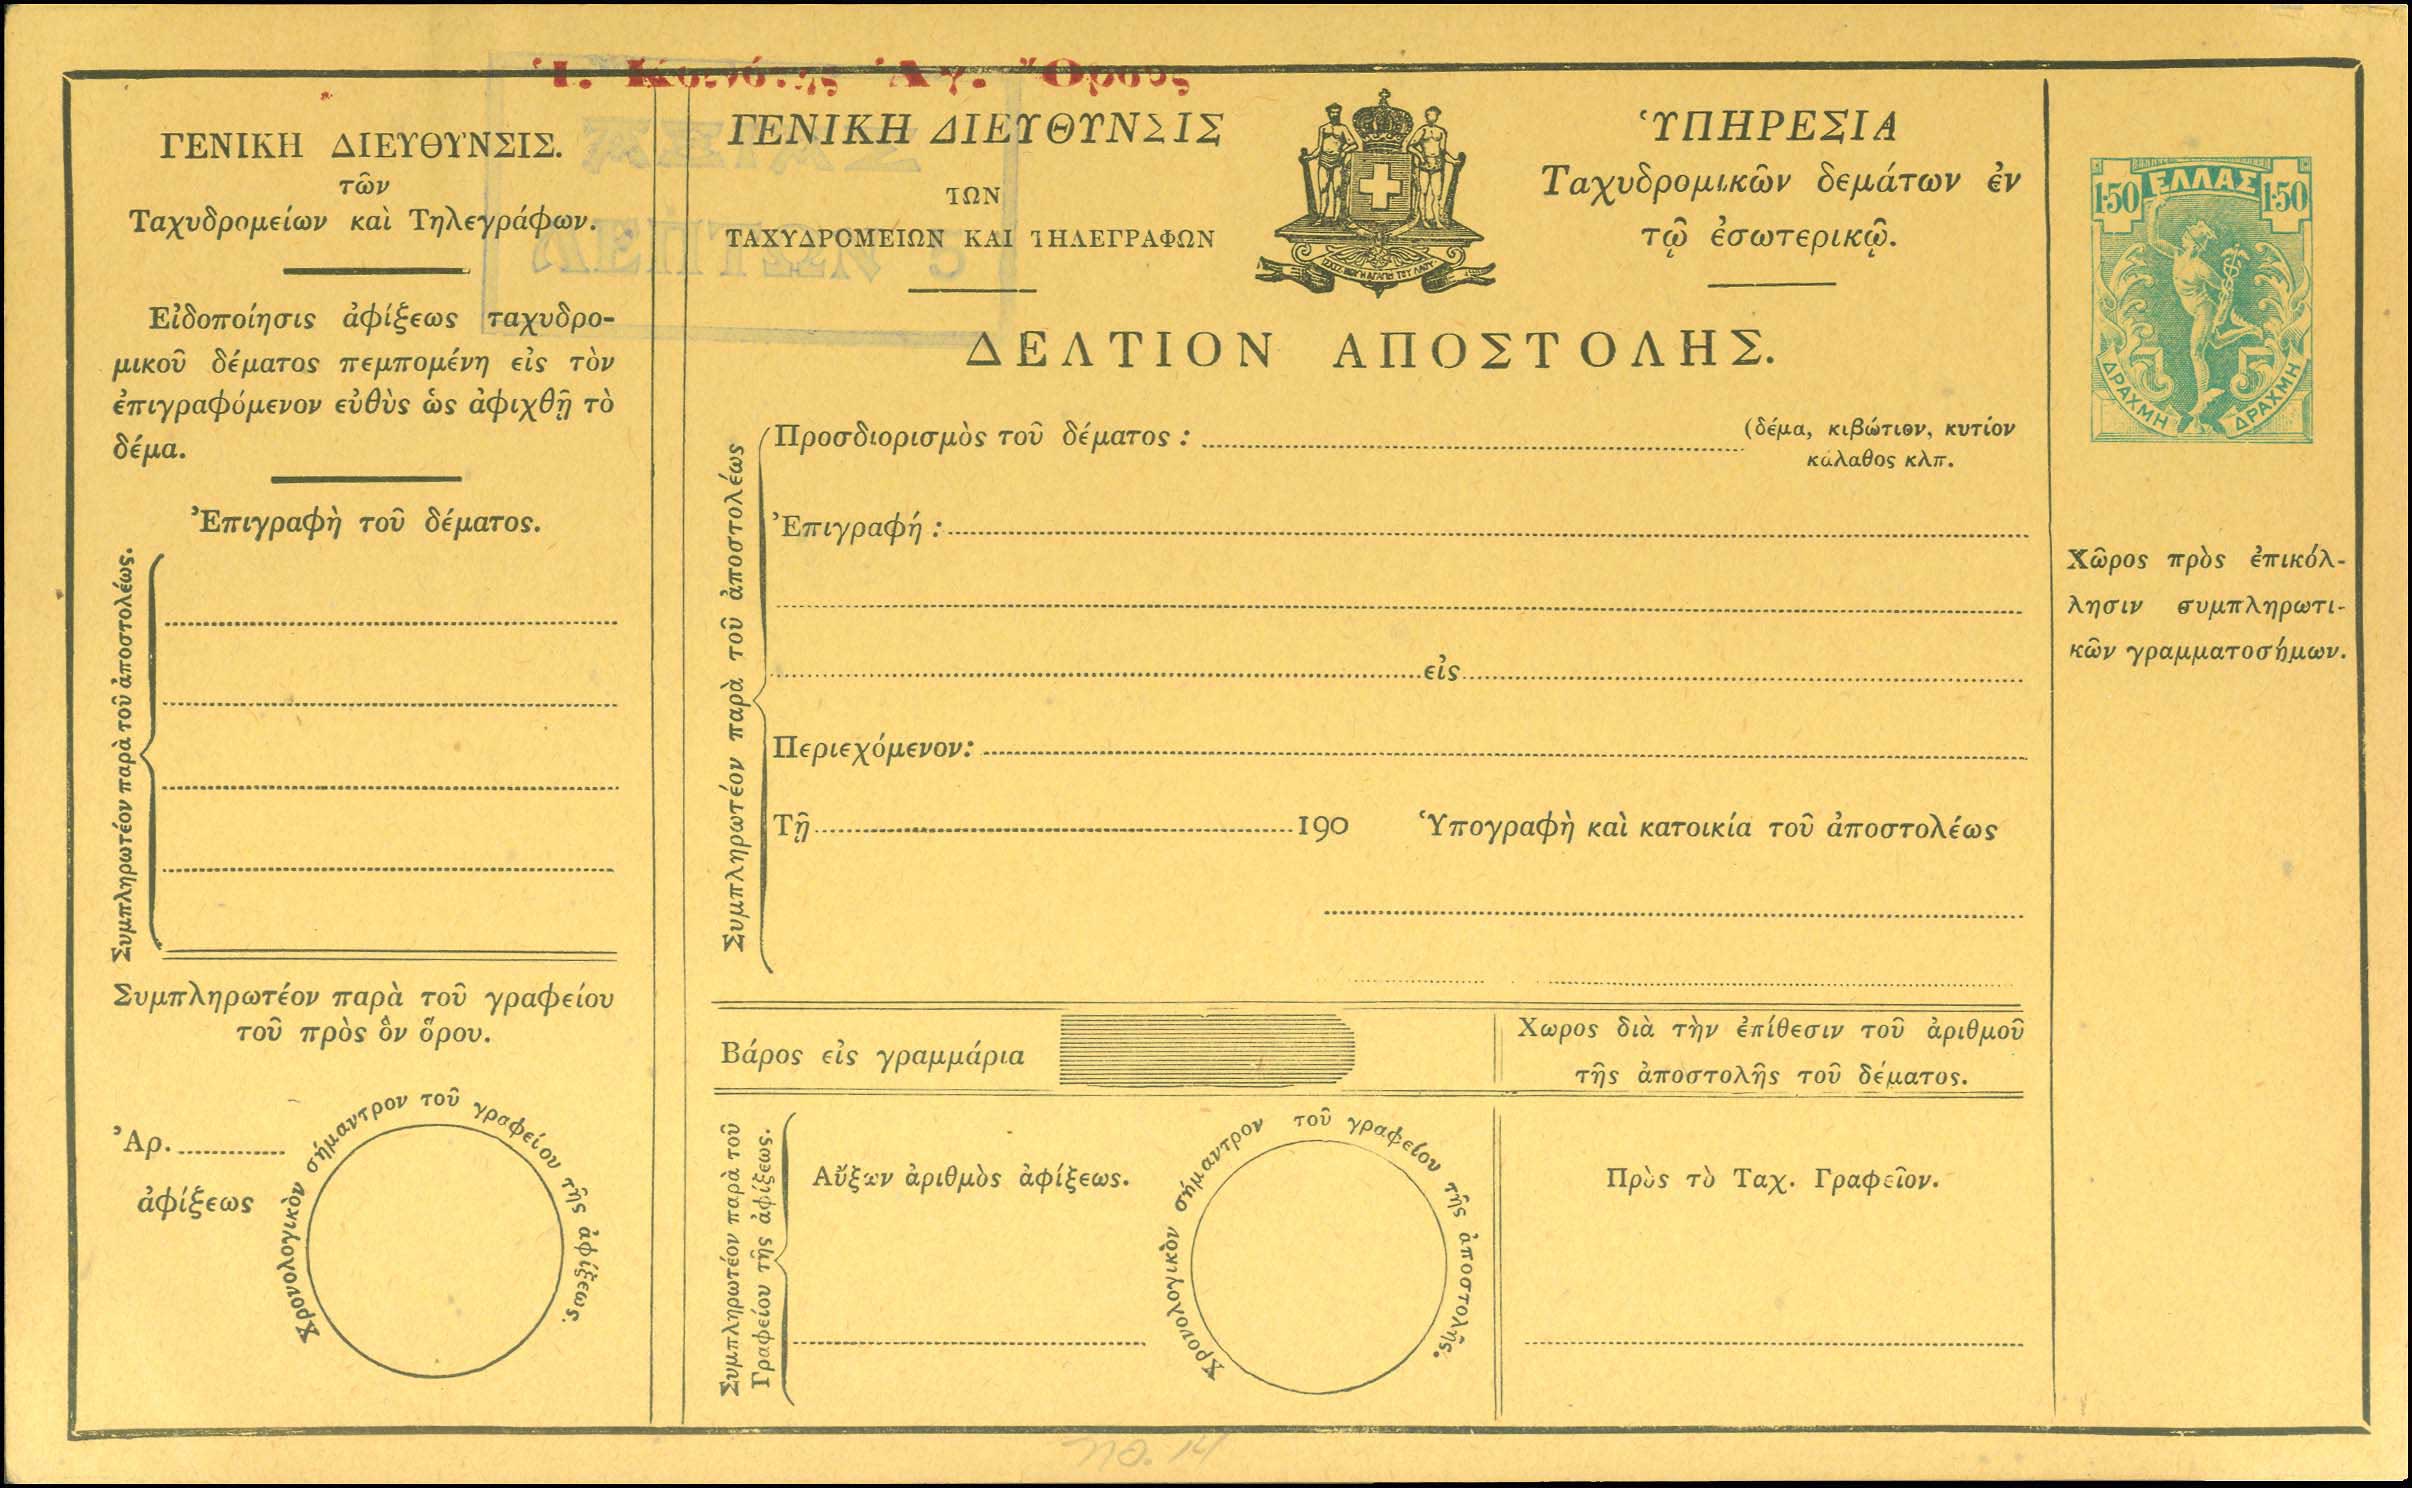 Ἱ. Κοινότης Ἁγ. Ὄρους
ΓΕΝΙΚΗ ΔΙΕΥΘΥΝΣΙΣ.
τῶν
Ταχυδρομείων καὶ Τηλεγράφων.
Εἰδοποίησις ἀφίξεως ταχυδρο-
μικοῦ δέματος πεμπομένη εἰς τὸν
ἐπιγραφόμενον εὐθὺς ὡς ἀφιχθῇ τὸ
δέμα.
Ἐπιγραφὴ τοῦ δέματος.
Συμπληρωτέον παρὰ τοῦ ἀποστολέως.
Συμπληρωτέον παρὰ τοῦ γραφείου
τοῦ πρὸς ὃν ὅρου.
Ἀρ.
ἀφίξεως
Χρονολογικὸν σήμαντρον τοῦ γραφείου τῆς ἀφίξεως.
ΓΕΝΙΚΗ ΔΙΕΥΘΥΝΣΙΣ
ΤΩΝ
ΤΑΧΥΔΡΟΜΕΙΩΝ ΚΑΙ ΤΗΛΕΓΡΑΦΩΝ
ὙΠΗΡΕΣΙΑ
Ταχυδρομικῶν δεμάτων ἐν
τῷ ἐσωτερικῷ.
ΔΕΛΤΙΟΝ ΑΠΟΣΤΟΛΗΣ.
Συμπληρωτέον παρὰ τοῦ ἀποστολέως
Προσδιορισμὸς τοῦ δέματος : (δέμα, κιβώτιον, κυτίον
κάλαθος κλπ.
Ἐπιγραφή :
εἰς
Περιεχόμενον:
Τῇ 190 Ὑπογραφὴ καὶ κατοικία τοῦ ἀποστολέως
Βάρος εἰς γραμμάρια
Χωρος διὰ τὴν ἐπίθεσιν τοῦ ἀριθμοῦ
τῆς ἀποστολῆς τοῦ δέματος.
Συμπληρωτέον παρὰ τοῦ
Γραφείου τῆς ἀφίξεως.
Αὔξων ἀριθμὸς ἀφίξεως.
Χρονολογικὸν σήμαντρον τοῦ γραφείου τῆς ἀποστολῆς.
Πρὸς τὸ Ταχ. Γραφεῖον.
1·50 ΕΛΛΑΣ 1·50
ΔΡΑΧΜΗ ΔΡΑΧΜΗ
Χῶρος πρὸς ἐπικόλ-
λησιν συμπληρωτι-
κῶν γραμματοσήμων.